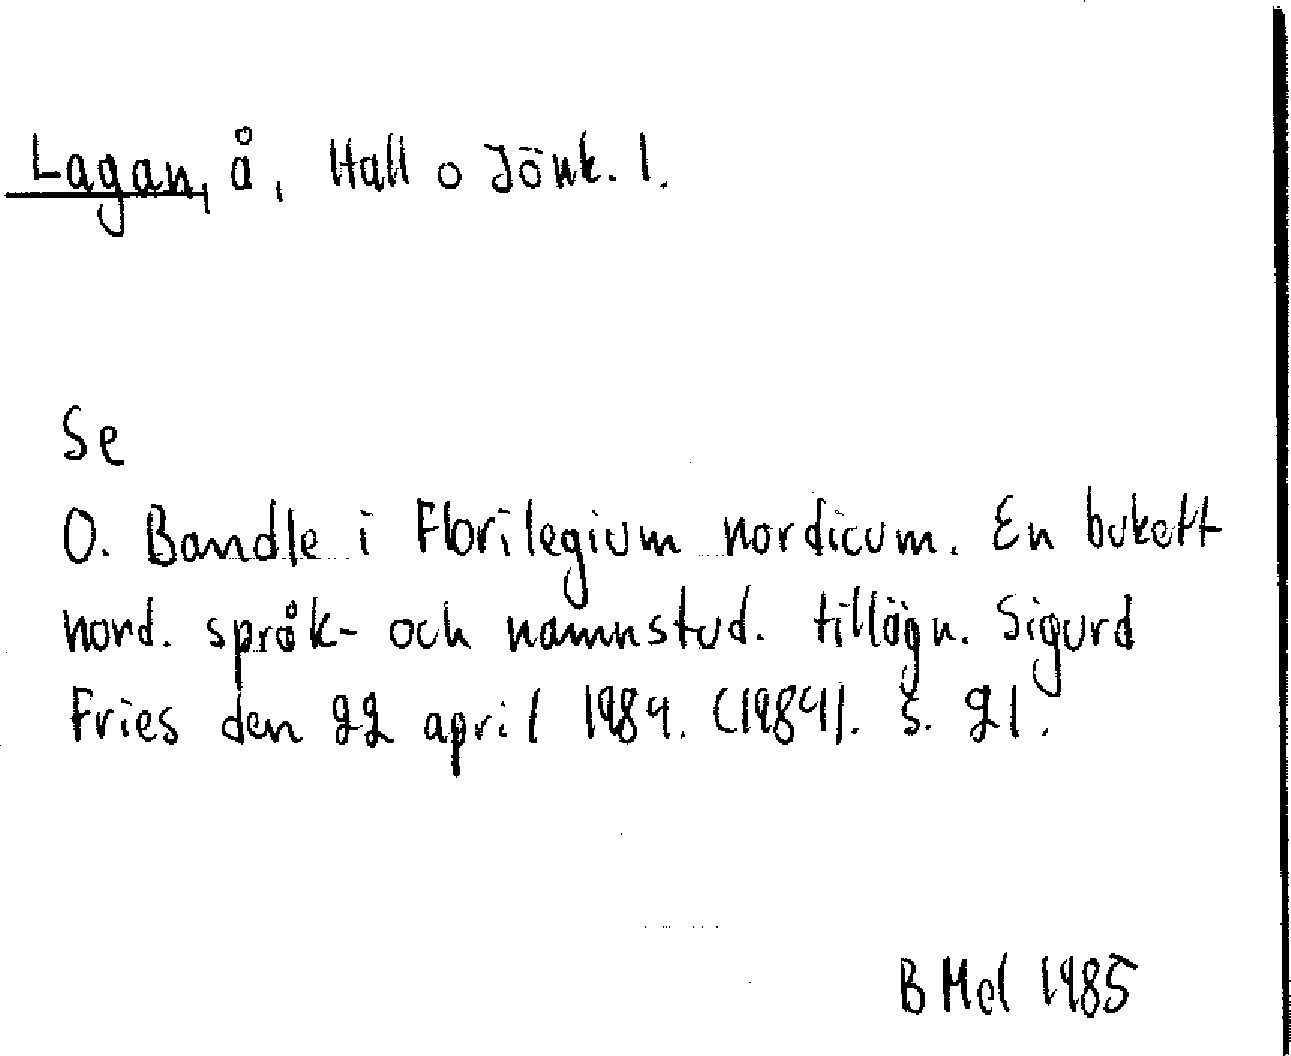 Lagan, å, Hall o Jönk. l.
Se
O. Bandle i Florilegium nordicum. En bukett
nord. språk- och namnstud. tillägn. Sigurd
Fries den 22 april 1984. (1984). s. 21.
B Mel 1985